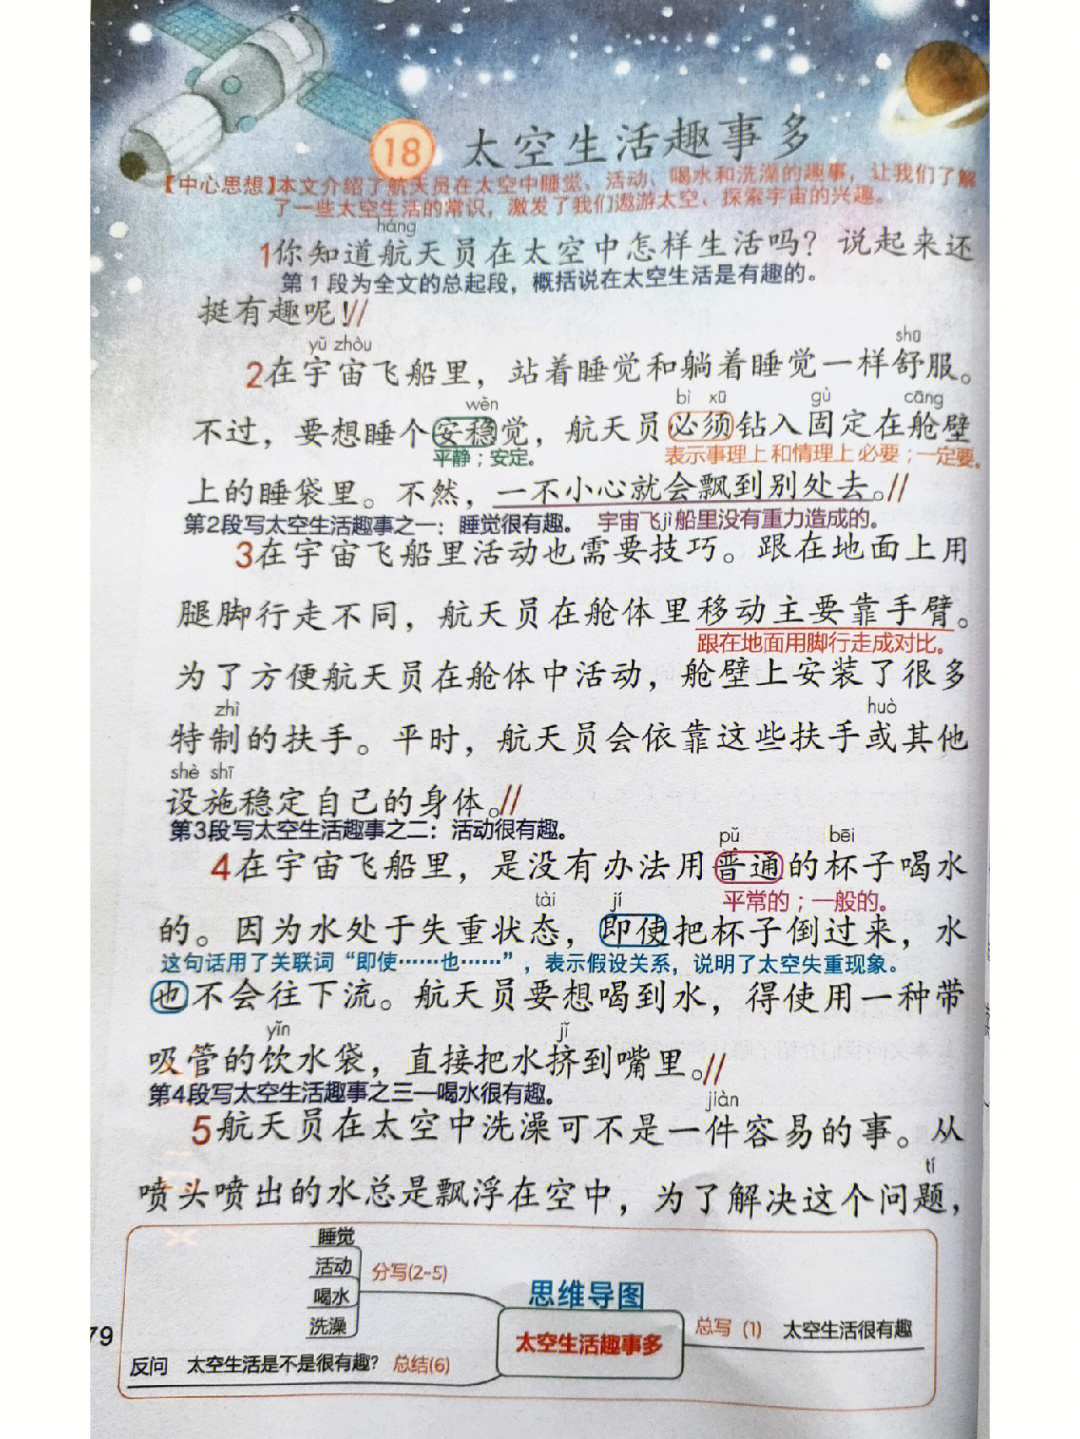 18 太空生活趣事多
【中心思想】本文介绍了航天员在太空中睡觉、活动、喝水和洗澡的趣事，让我们了解
了一些太空生活的常识，激发了我们遨游太空、探索宇宙的兴趣。
háng
1你知道航天员在太空中怎样生活吗？说起来还
第1段为全文的总起段，概括说在太空生活是有趣的。
挺有趣呢！//
yǔ zhòu shū
2在宇宙飞船里，站着睡觉和躺着睡觉一样舒服。
wěn bì xū gù cāng
不过，要想睡个安稳觉，航天员必须钻入固定在舱壁
平静；安定。 表示事理上和情理上必要；一定要。
上的睡袋里。不然，一不小心就会飘到别处去。//
第2段写太空生活趣事之一：睡觉很有趣。 宇宙飞船里没有重力造成的。
jì
3在宇宙飞船里活动也需要技巧。跟在地面上用
腿脚行走不同，航天员在舱体里移动主要靠手臂。
跟在地面用脚行走成对比。
为了方便航天员在舱体中活动，舱壁上安装了很多
zhì huò
特制的扶手。平时，航天员会依靠这些扶手或其他
shè shī
设施稳定自己的身体。//
第3段写太空生活趣事之二：活动很有趣。
pǔ bēi
4在宇宙飞船里，是没有办法用普通的杯子喝水
平常的；一般的。
tài jí
的。因为水处于失重状态，即使把杯子倒过来，水
这句话用了关联词“即使……也……”，表示假设关系，说明了太空失重现象。
也不会往下流。航天员要想喝到水，得使用一种带
yǐn jǐ
吸管的饮水袋，直接把水挤到嘴里。//
第4段写太空生活趣事之三—喝水很有趣。
jiàn
5航天员在太空中洗澡可不是一件容易的事。从
tí
喷头喷出的水总是飘浮在空中，为了解决这个问题，
睡觉
活动
喝水
洗澡
分写(2-5)
思维导图
太空生活趣事多
总写（1） 太空生活很有趣
79
反问 太空生活是不是很有趣？ 总结(6)